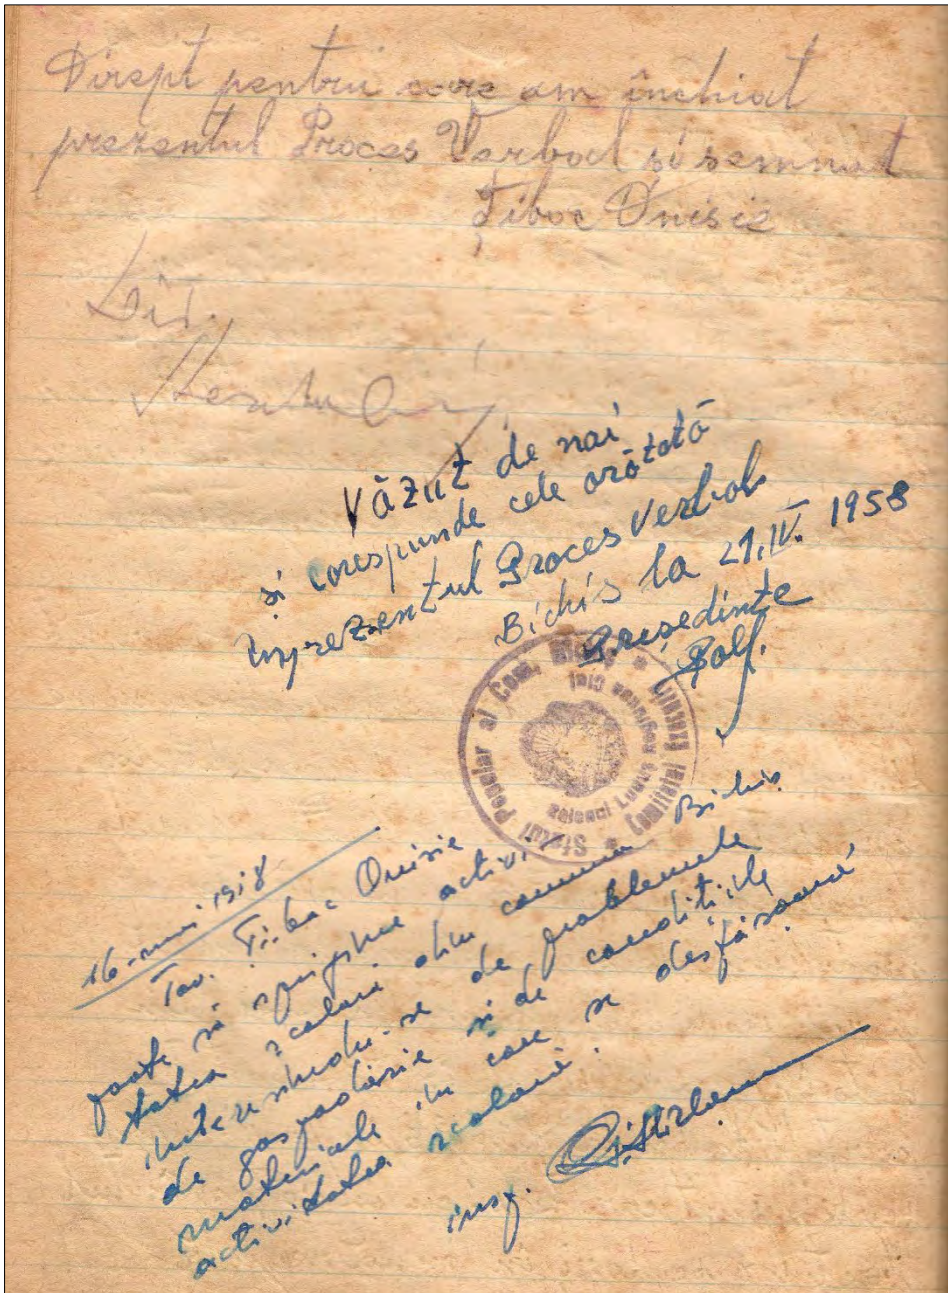 Dirept pentru care am închiat
prezentul Proces Verbal si semnat
Țiboc Onisie
Dir.
Văzut de noi
si corespunde cele arătată
în prezentul Proces Verbal
Bichiș la 21.IV. 1958
Președinte
Sfatul Popular al Com. * Comitetul Executiv *
Raionul Luduș Regiunea Cluj
16 mai 1958
Tov. Țiboc Onisie
poate să sprijine activi-
tatea școlară din comuna Bichiș
interesându-se de problemele
de gospodărie și de condițiile
materiale în care se desfășoară
activitatea școlară.
insp.